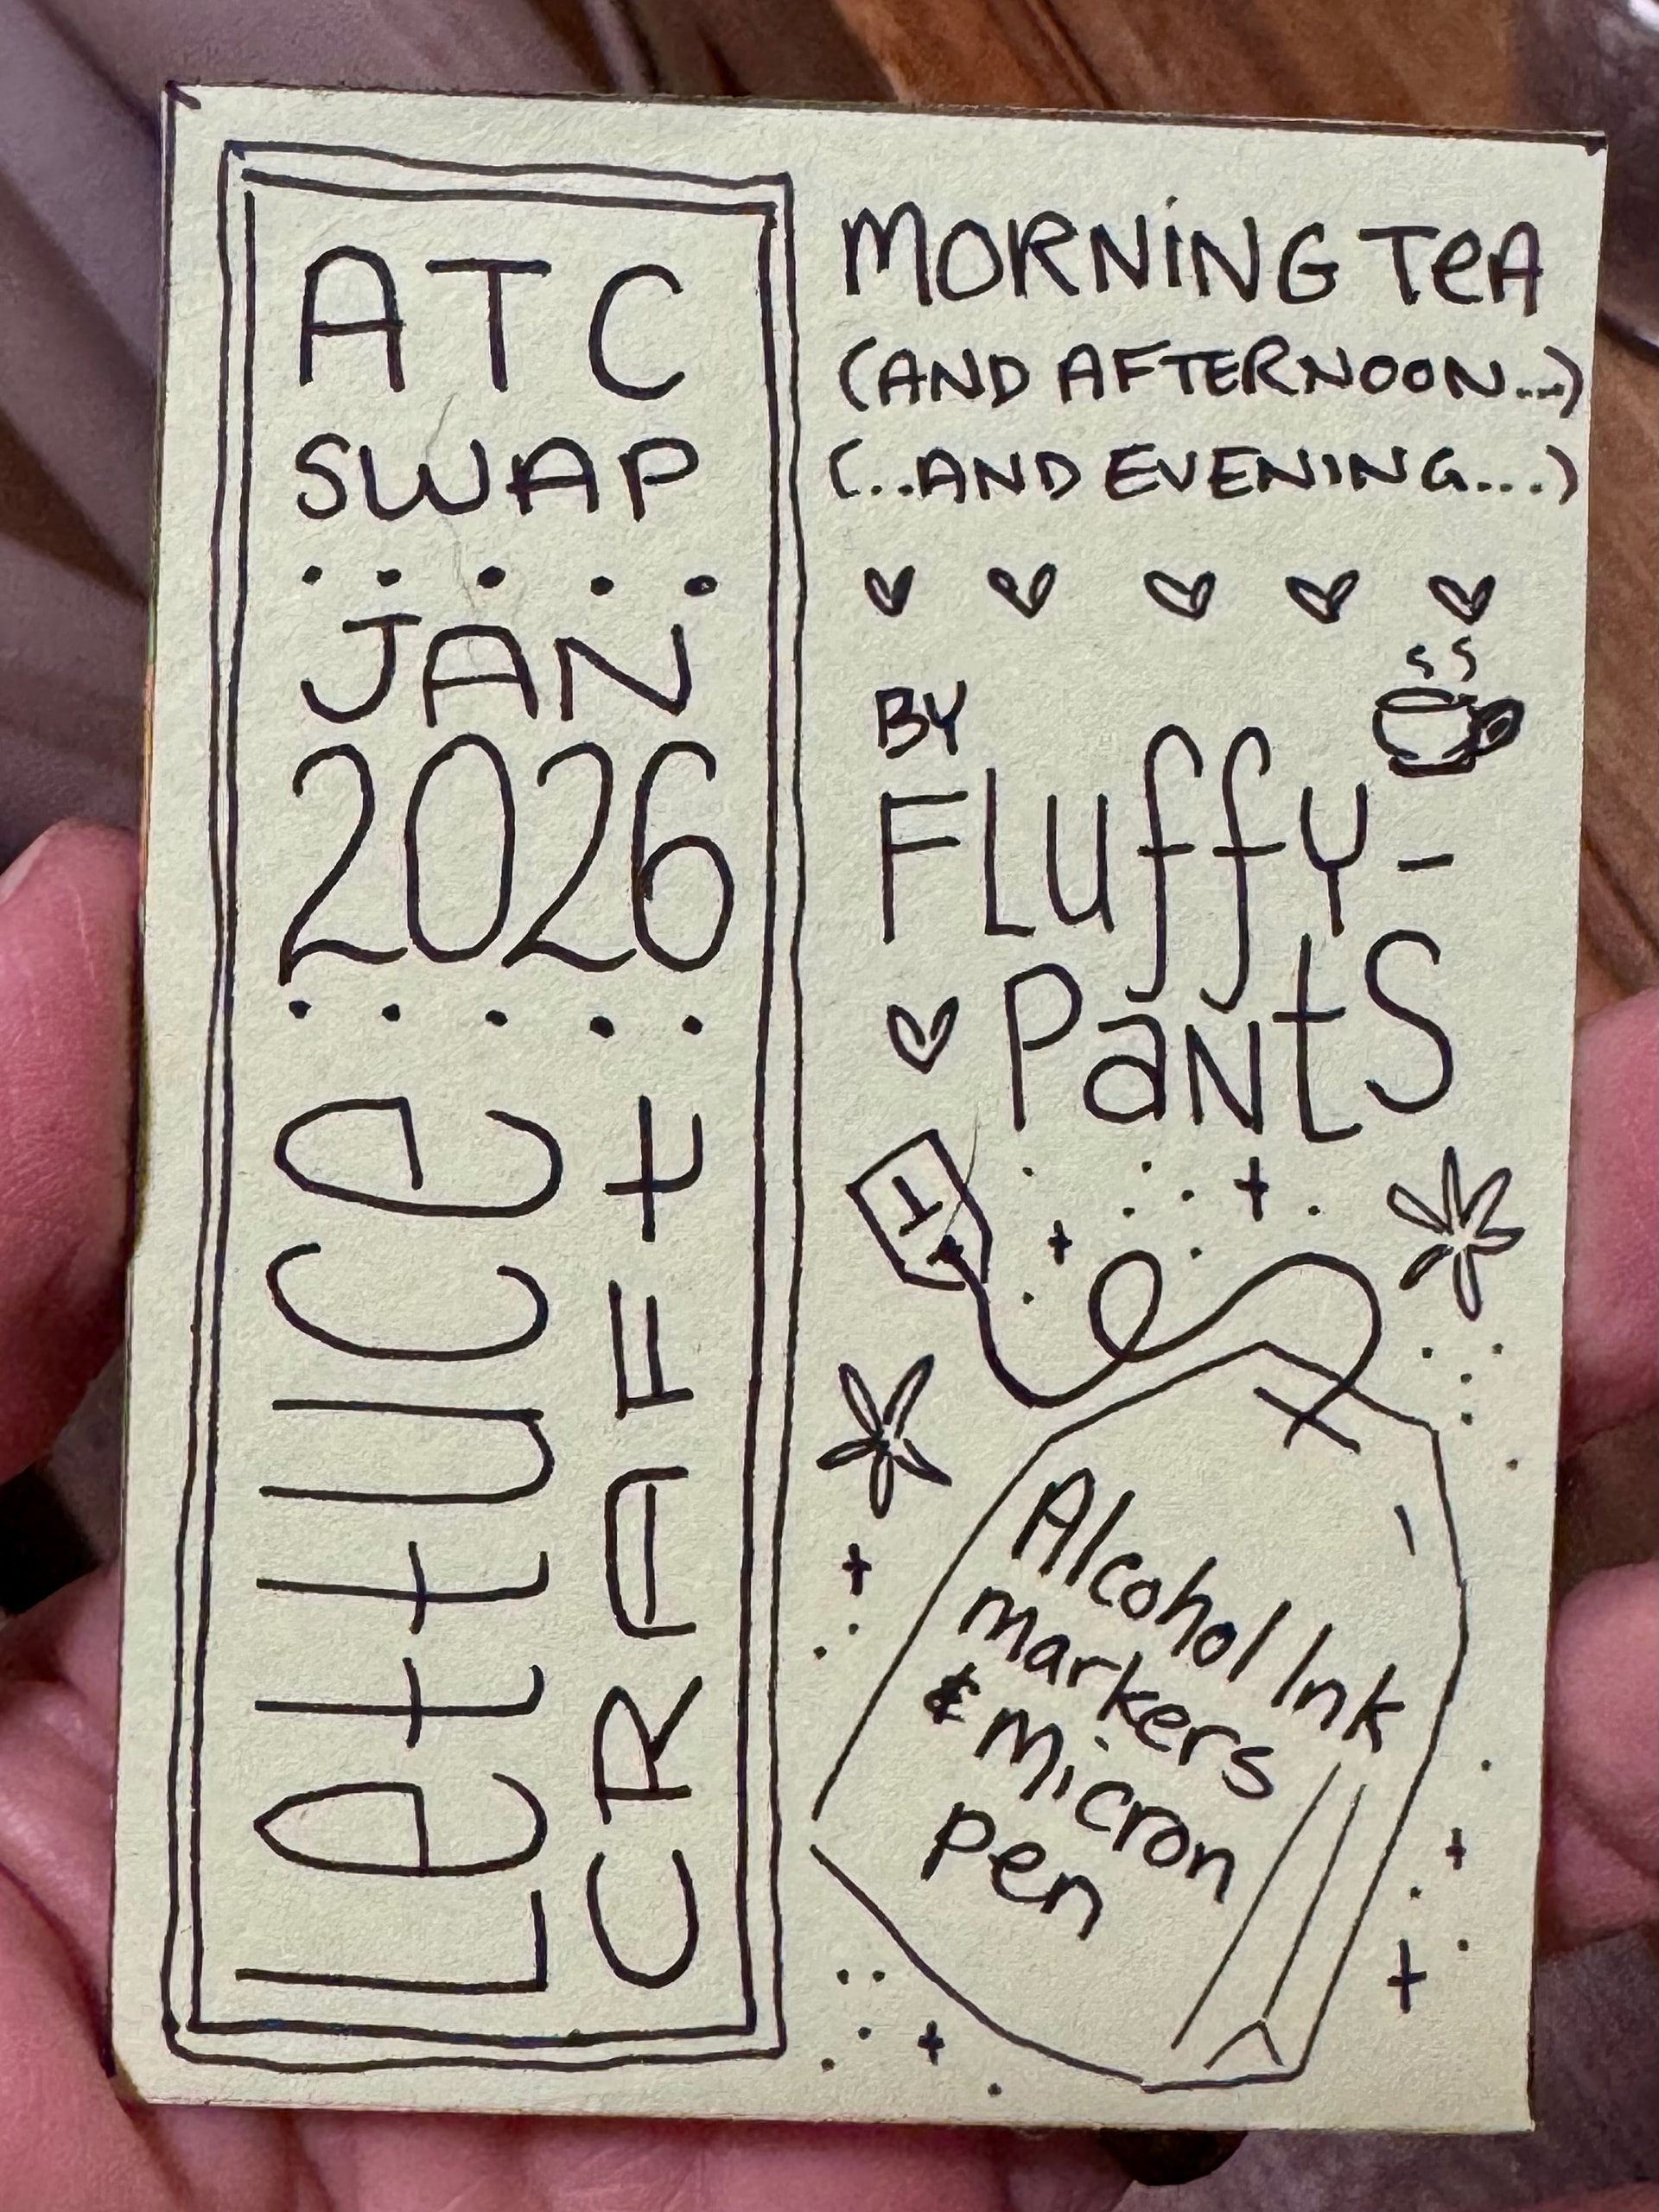 ATC
SWAP
JAN
2026
Lettuce
CRAFt
MORNiNG TeA
(AND AFTERNOON...)
(...AND EVENING....)
BY
FLuffy-
PaNtS
T
Alcohol Ink
markers
& Micron
pen